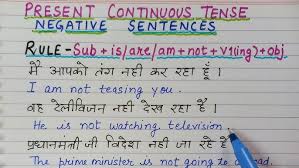 PRESENT CONTINUOUS TENSE
NEGATIVE SENTENCES
RULE - Sub + is/are/am + not + V1(ing) + obj
मैं आपको तंग नहीं कर रहा हूँ ।
I am not teasing you.
वह टेलीविजन नहीं देख रहा है ।
He is not watching television.
प्रधानमंत्री जी विदेश नहीं जा रहे हैं
The prime minister is not going to